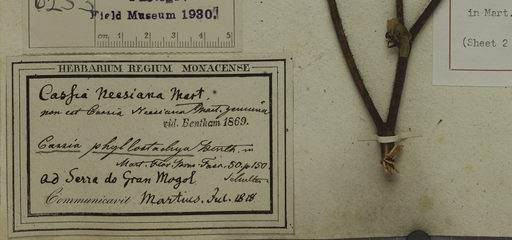 Field Museum 1930.
cm 1 2 3 4 5
in Mart.
(Sheet 2
HERBARIUM REGIUM MONACENSE
Cassia Neesiana Mart.
non est Cassia Neesiana Mart. genuina
vid. Bentham 1869.
Cassia phyllostachya Benth. in
Mart. Flor. Bras. Fasc. 50. p 150.
ad Serra do Gran Mogol
Communicavit Martius. Jul. 1818